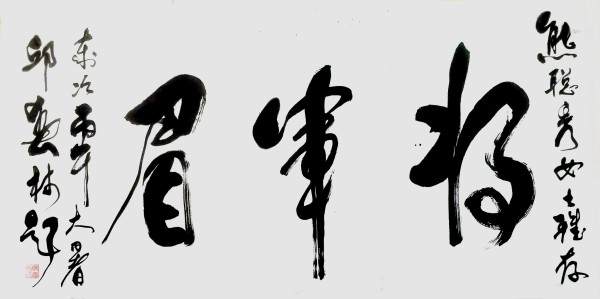 熊聪秀女士雅存
将军眉
岁次丙午大暑
邱春林题